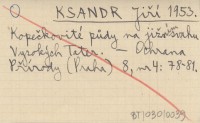 O KSANDR Jiří 1953.
Kopečkovité půdy na jižním svahu
Vysokých Tater. — Ochrana
Přírody (Praha) 8, nr 4: 78-81.
BT/030/0039